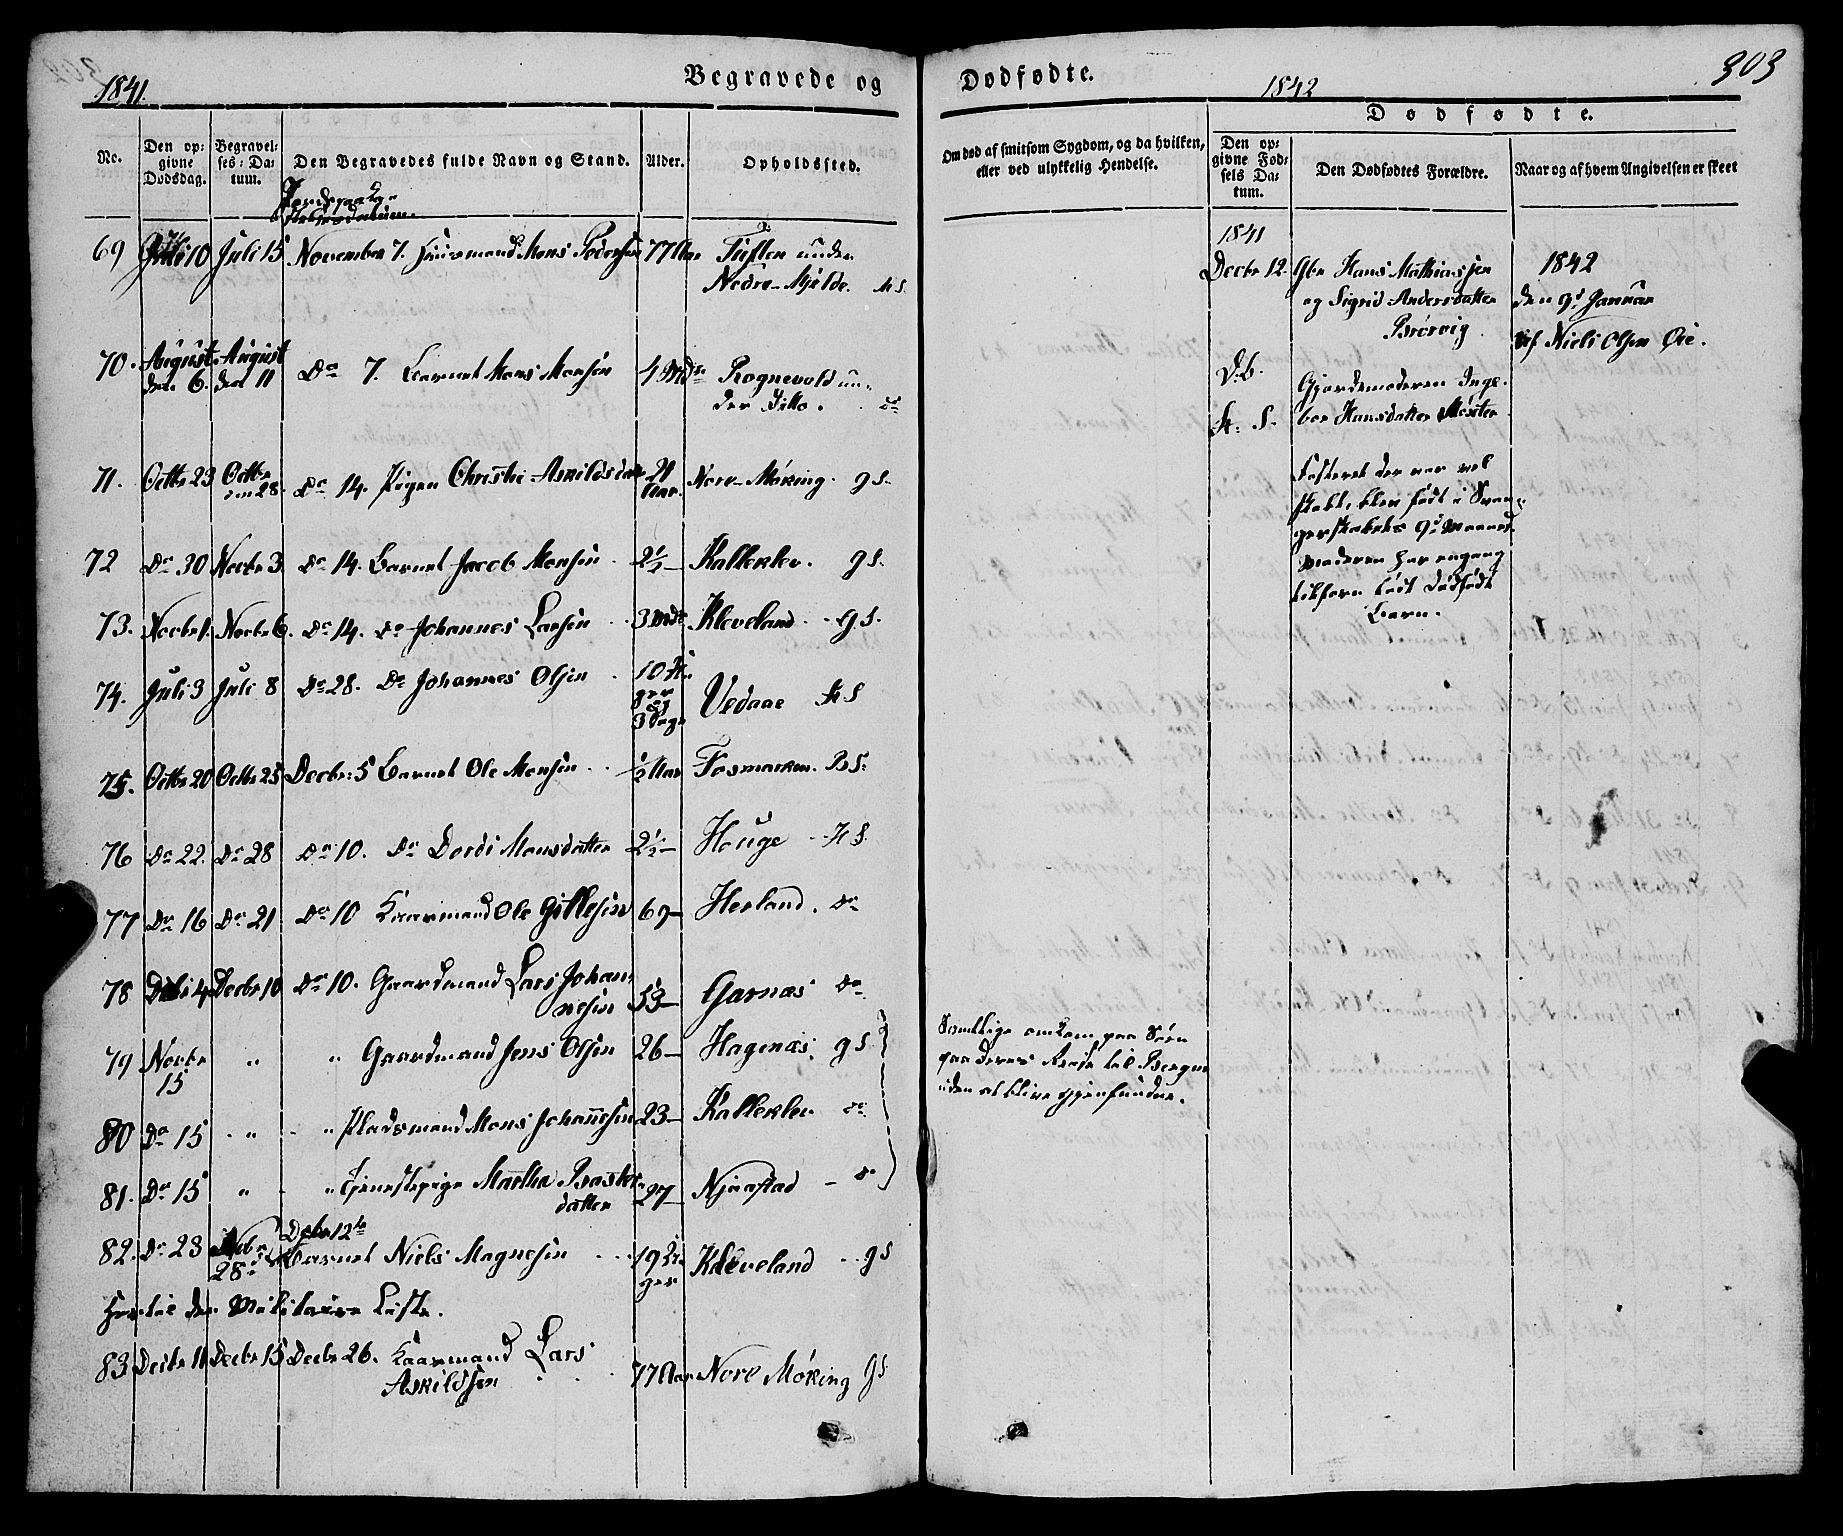 1841.
Begravede og
No.
Den op-
givne
Dødsdag.
Begravel-
ses-Da-
tum.
Den Begravedes fulde Navn og Stand.
Alder.
Opholdssted.
Jordpaa-
kastelsesdatum.
69 Juli 10 Juli 15 November 7. Huusmand Mons Pedersen 77 Aar Tuften under
Nedre-Mjelde. H S.
70. August August Do 7. Barnet Mons Monsen 4 Mdr Rognevold un-
den 6. den 11 der Ditto. do
71. Octbr 23 Octbr Do 14. Pigen Christi Askildsdatter 21 Nore-Møking. G S.
den 28. Aar.
72 Do 30 Novbr 3 Do 14. Barnet Jacob Monsen 2½ — Kalleklev. G S.
73. Novbr 1. Novbr 6. Do 14. Do Johannes Larsen 3 Mdr Kleveland G S.
74. Juli 3 Juli 8 Do 28. Do Johannes Olsen 10 U-
ger og 3 Dage Vedaae H S
75. Octbr 20 Octbr 25 Decbr: 5 Barnet Ole Monsen ½ Aar Fosmarken. B S:
76 Do 22. Do 28 Do 10. Do Dordi Monsdatter 2½ — Houge H S.
77 Do 16 Do 21 Do 10 Kaarmand Ole Gillesen 69 — Herland. do
78 Decbr 4 Decbr 10 Do 10. Gaardmand Lars Johan-
nesen 53 — Garnæs do
79 Novbr " " Gaardmand Jens Olsen 26 — Hagenæs. G S
15
80 Do 15 " " Pladsmand Mons Johannesen 23 — Kalleklev do
81. Do 15 " " Tjenestepige Martha Brosters-
datter 27 — Njaastad do
82. Do 23 Novbr Decbr 12te
28de Barnet Niels Magnesen 19 U-
ger Kleveland G S
Hertil den Militaire Liste.
83 Decbr 11 Decbr 15 Decbr 26. Kaarmand Lars
Askildsen 77 Aar Nore Møking G S
303
Dødfødte.
1842
Om død af smitsom Sygdom, og da hvilken,
eller ved ulykkelig Hendelse.
Dødfødte.
Den op-
givne Fød-
sels Da-
tum.
Den Dødfødtes Forældre.
Naar og af hvem Angivelsen er skeet
1841
Decbr 12. Gbr Hans Mathiassen
og Sigrid Andersdatter
Brørvig.
1842
den 9de Januar
af Niels Olsen Øie.
D. b.
H. S.
Gjordemoderen Inge-
bor Hansdatter Mester
Fosteret der var vel
skabt, blev født i Svan-
gerskabets 9de Maaned.
Moderen har engang
tilforn født dødfødt
Barn.
Samtlige omkom paa Søen
paa deres Reise til Bergen
uden at blive gjenfundne.